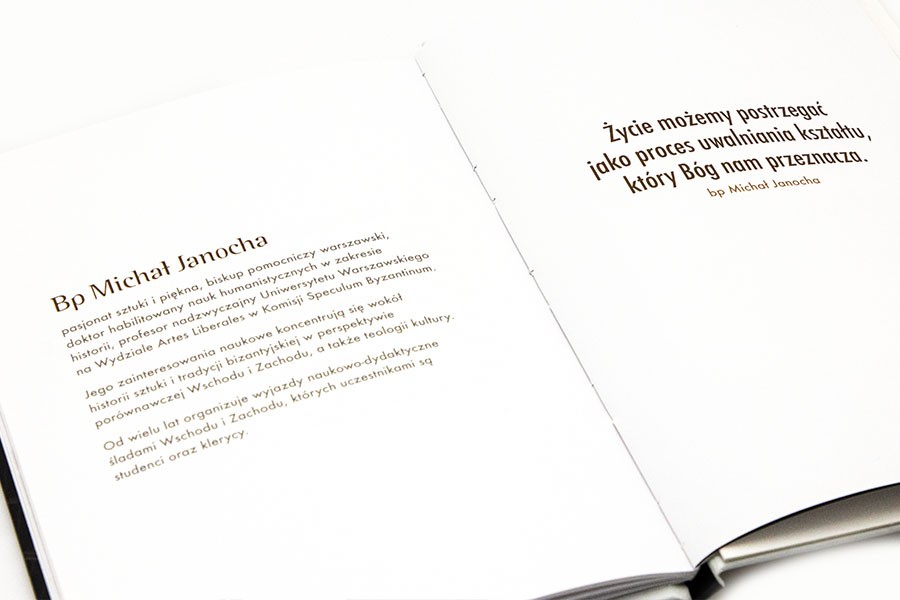 Bp Michał Janocha
pasjonat sztuki i piękna, biskup pomocniczy warszawski,
doktor habilitowany nauk humanistycznych w zakresie
historii, profesor nadzwyczajny Uniwersytetu Warszawskiego
na Wydziale Artes Liberales w Komisji Speculum Byzantinum.
Jego zainteresowania naukowe koncentrują się wokół
historii sztuki i tradycji bizantyjskiej w perspektywie
porównawczej Wschodu i Zachodu, a także teologii kultury.
Od wielu lat organizuje wyjazdy naukowo-dydaktyczne
śladami Wschodu i Zachodu, których uczestnikami są
studenci oraz klerycy.
Życie możemy postrzegać
jako proces uwalniania kształtu,
który Bóg nam przeznacza.
bp Michał Janocha